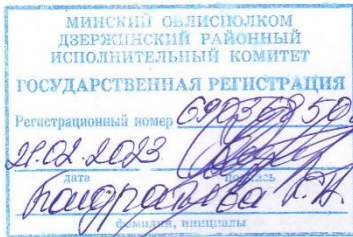 МИНСКИЙ ОБЛИСПОЛКОМ
ДЗЕРЖИНСКИЙ РАЙОННЫЙ
ИСПОЛНИТЕЛЬНЫЙ КОМИТЕТ
ГОСУДАРСТВЕННАЯ РЕГИСТРАЦИЯ
Регистрационный номер 69036850
21.02.2023
дата подпись
Кондратьева
фамилия, инициалы